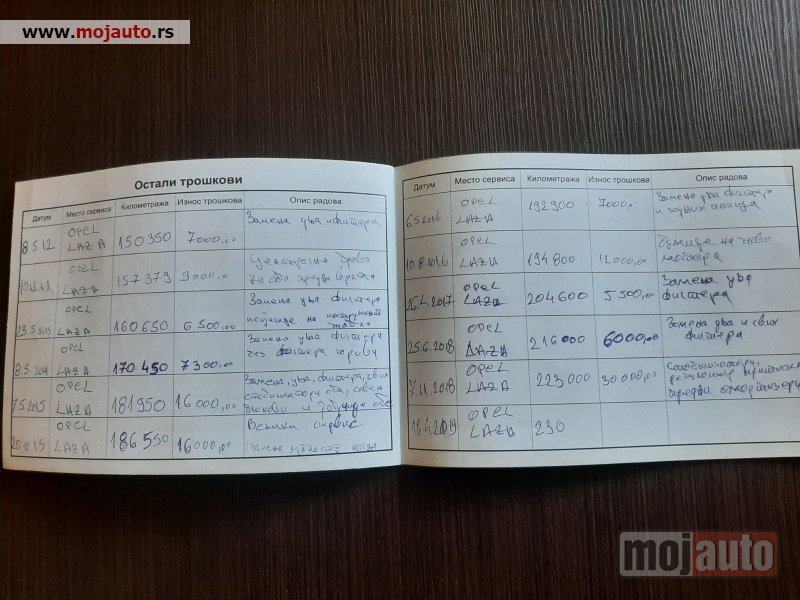 www.mojauto.rs
Остали трошкови
Датум Место сервиса Километража Износ трошкова Опис радова
8.5.12 OPEL LAZA 150350 7000,00 Замена уља и филтера
10.12.12 OPEL LAZA 157379 9000,00 Централно браво на оба предња врата
23.5.2013 OPEL LAZA 160650 6500,00 Замена уља филтера
на инструмент табли
8.5.2014 OPEL LAZA 170450 7300,00 Замена уља филтера
без филтера горива
7.5.2015 OPEL LAZA 181950 16000,00 Замена, уља, филтера, свих
стабилизатори оба,
20.10.15 OPEL LAZA 186550 16000,00 Велики сервис
Датум Место сервиса Километража Износ трошкова Опис радова
6.5.2016 OPEL LAZA 192900 7000,00 Замена уља филтера
и
10.8.2016 OPEL LAZA 194800 12000,00 на
26.4.2017 OPEL LAZA 204600 5500,00 Замена уља
филтера
25.6.2018 OPEL LAZA 216000 6000,00 Замена уља и свих
филтера
7.11.2018 OPEL LAZA 223000 30000,00 Стабилизатори,
предњи амортизери
OPEL LAZA 230
mojauto